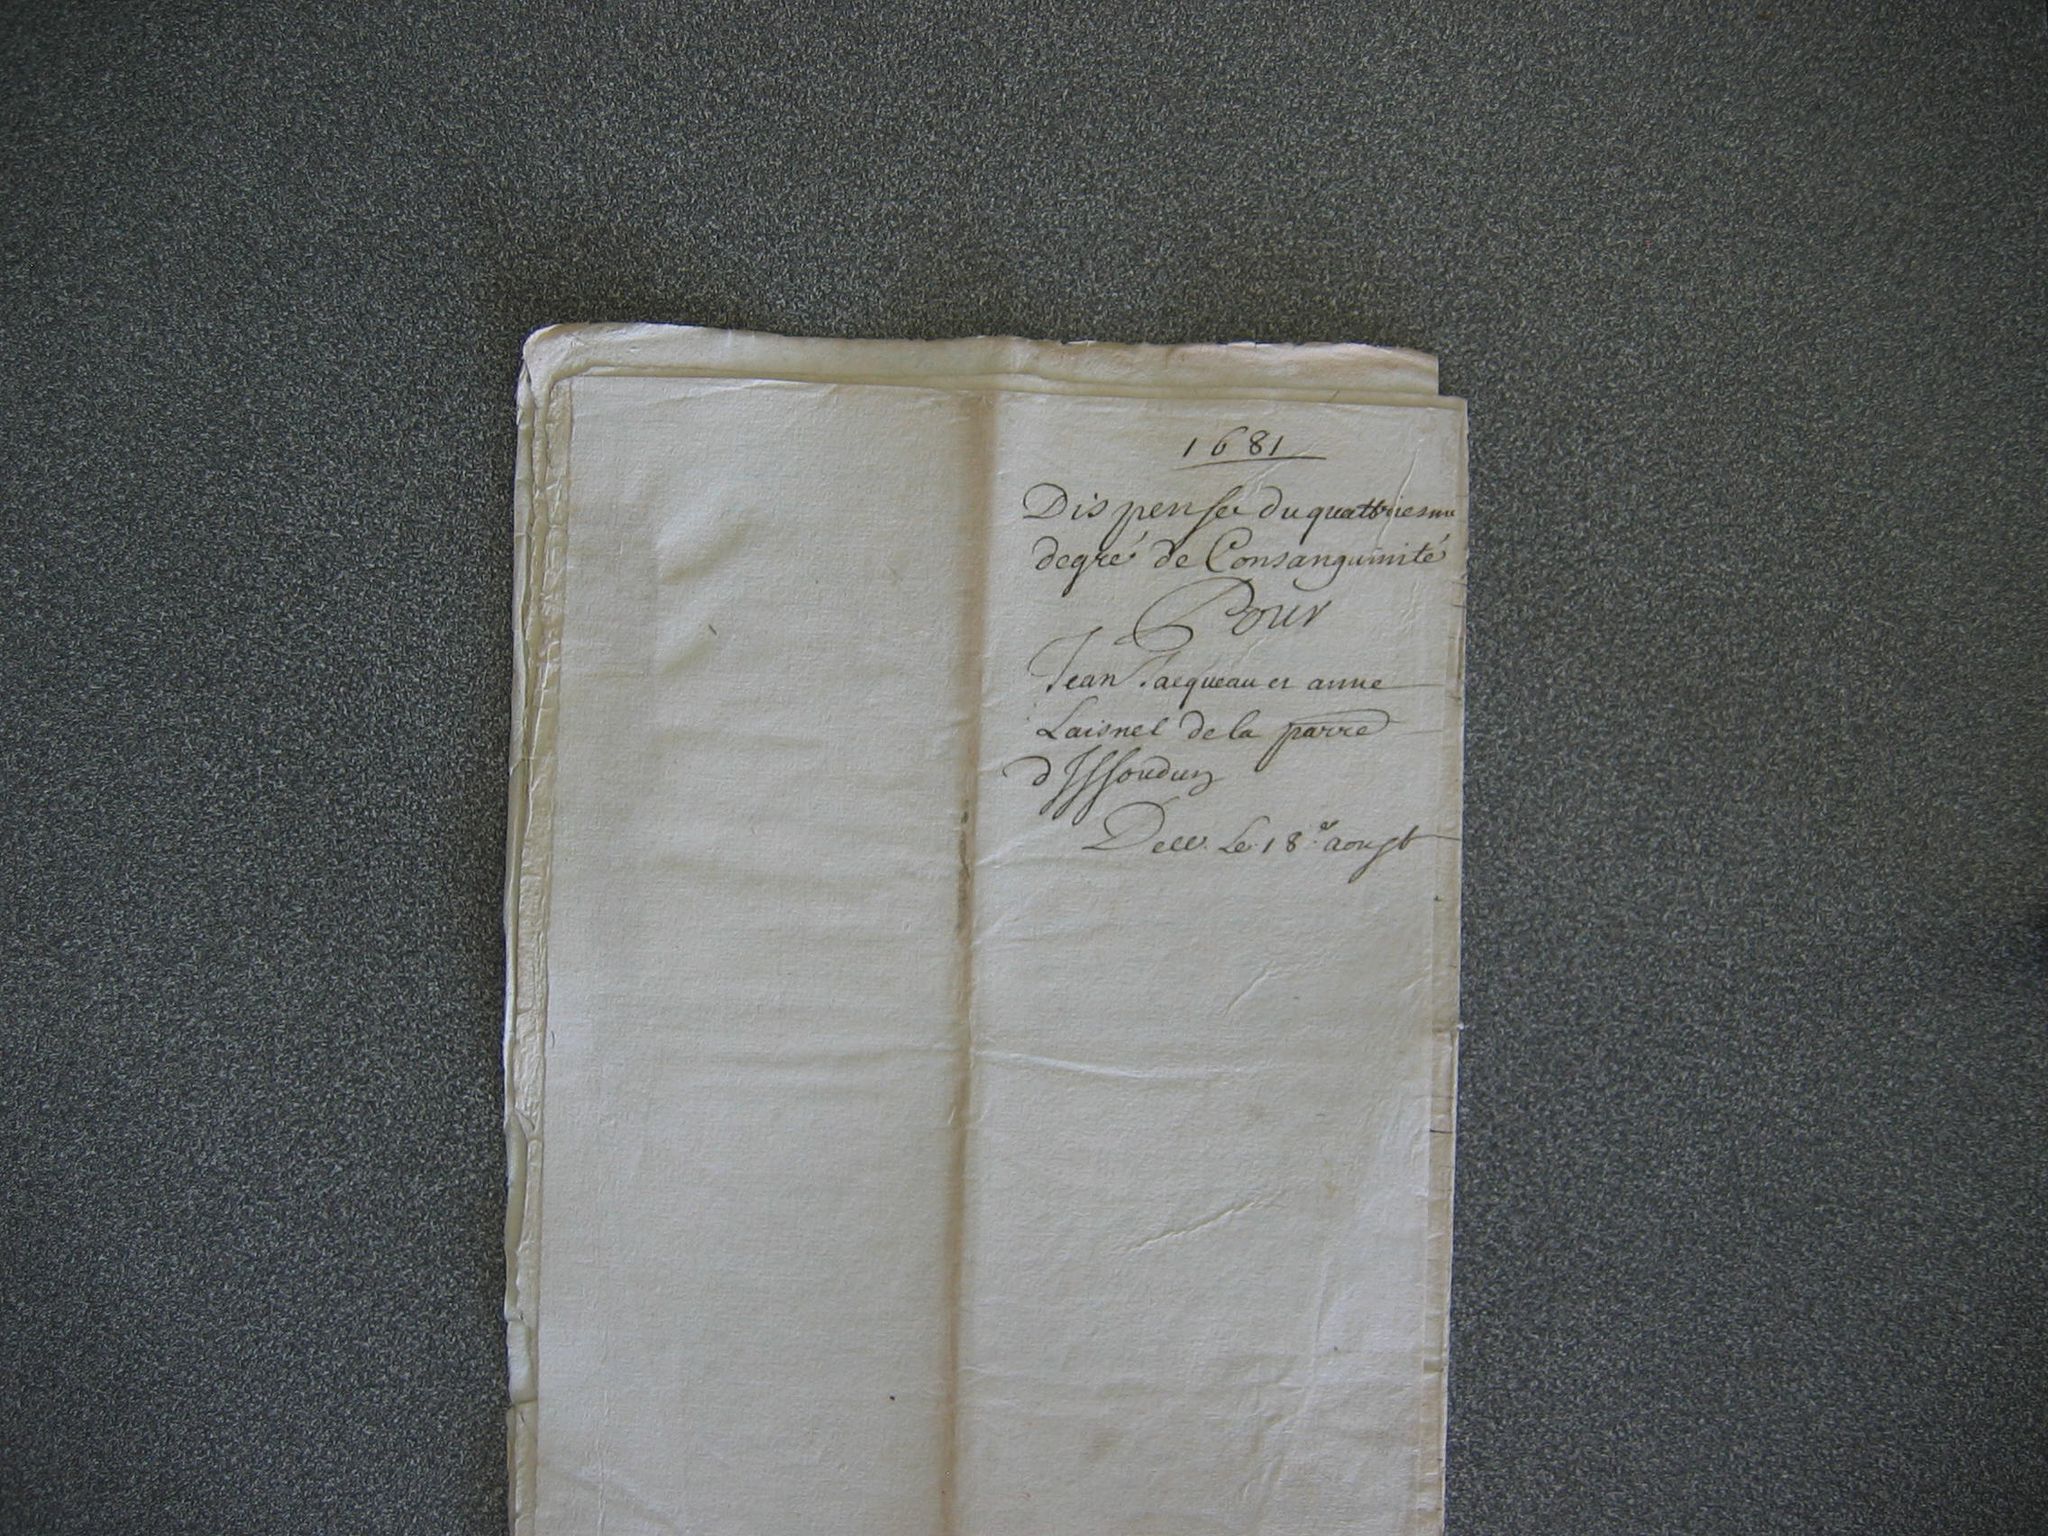 1681
Dispense du quattriesme
degré de Consanguinité
Pour
Jean Jacqueau et anne
Laisnel de la parre
d'Issoudun
Dell. Le 18.e aougst